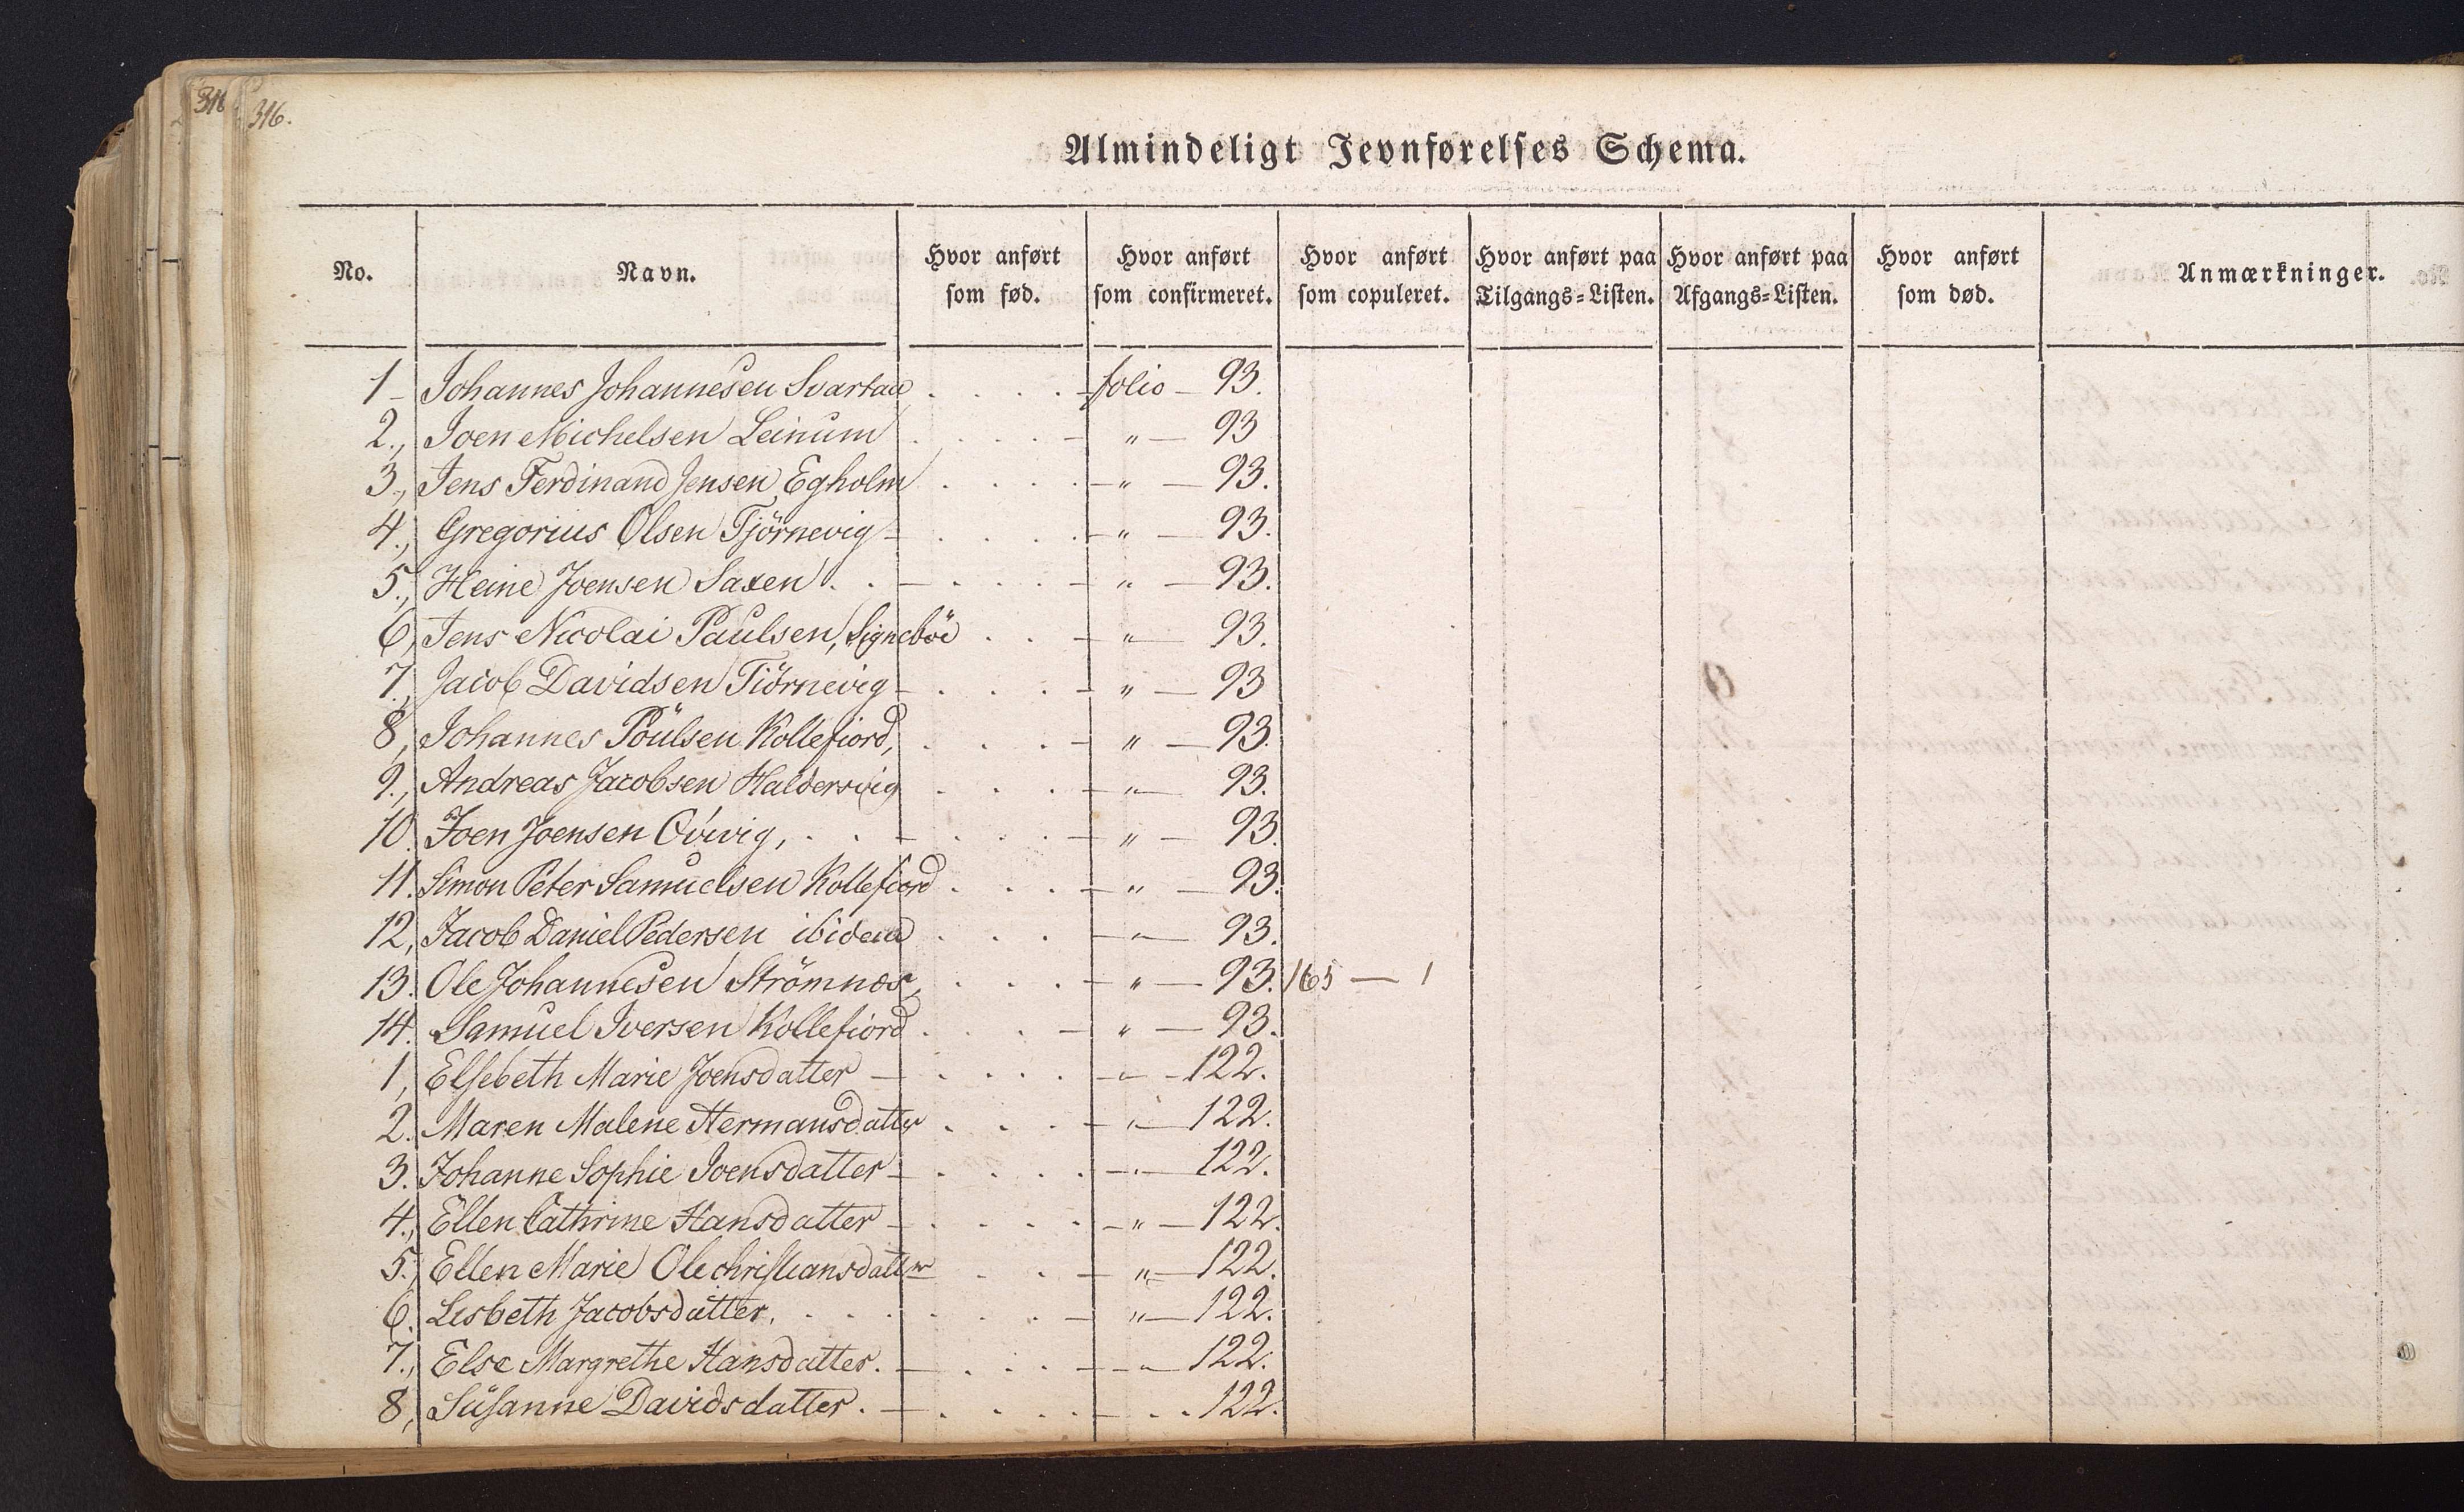 316.
316.
Almindeligt Jevnførelses Schema.
No. Navn. Hvor anført som fød. Hvor anført som confirmeret. Hvor anført som copuleret. Hvor anført paa Tilgangs-Listen. Hvor anført paa Afgangs-Listen. Hvor anført som død. Anmærkninger.
1 - Johannes Johannesen Svartaa . . . . - folio - 93.
2., Joen Michelsen Leinum . . . . - " — 93
3., Jens Ferdinand Jensen Egholm . . . . - " — 93.
4., Gregorius Olsen Tjörnevig - . . . . - " — 93.
5., Heine Joensen Saxen . . - . . . . - " — 93.
6, Jens Nicolai Paulsen, Signeböe . . - " — 93.
7., Jacob Davidsen Tiörnevig - . . . - " — 93
8, Johannes Poulsen Kollefiord, . . . - " — 93.
9., Andreas Jacobsen Haldersvig . . . - " — 93.
10. Joen Joensen Qvivig, . . - . . . - " — 93.
11. Simon Peter Samuelsen Kollefiord . . . - " — 93.
12, Jacob Daniel Pedersen ibidem . . . - " — 93.
13. Ole Johannesen Strömnæs, . . . - " — 93. 165 — 1
14. Samuel Iversen Kollefiord . . . - " — 93.
1, Elsebeth Marie Joensdatter - . . . . - " - 122.
2. Maren Malene Hermansdatter . . . - " — 122.
3. Johanne Sophie Joensdatter - . . . . - " — 122.
4., Ellen Cathrine Hansdatter - . . . . - " — 122.
5., Ellen Marie Olechristiansdatter . . - " — 122.
6. Lisbeth Jacobsdatter. . . . . . . - " — 122.
7., Else Margrethe Hansdatter. - . . . - " — 122.
8, Susanne Davidsdatter. - . . . . - . . 122.